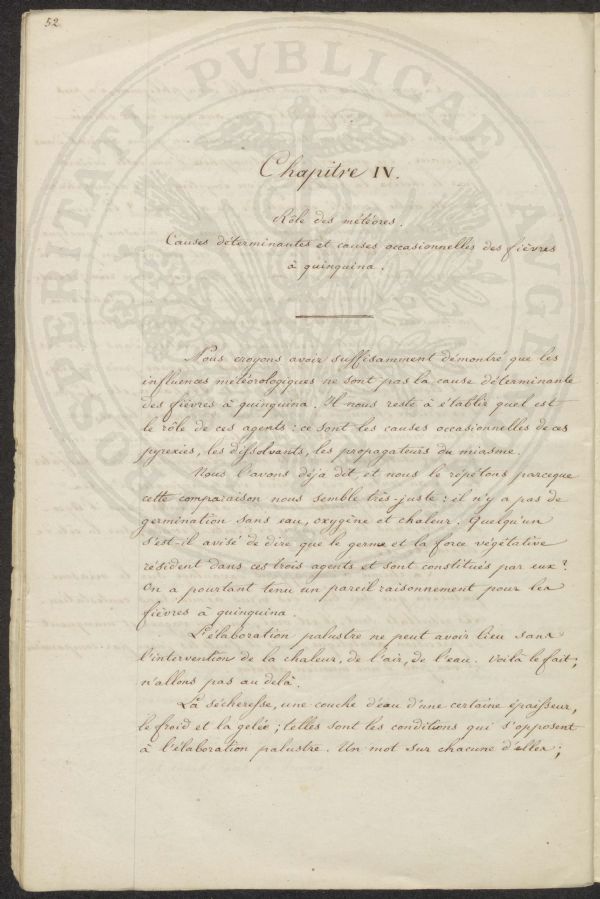 52
Chapitre IV.
Rôle des météores.
Causes déterminantes et causes occasionnelles des fièvres
à quinquina.
Nous croyons avoir suffisamment démontré que les
influences météorologiques ne sont pas la cause déterminante
des fièvres à quinquina. Il nous reste à établir quel est
le rôle de ces agents: ce sont les causes occasionnelles de ces
pyrexies, les dissolvants, les propagateurs du miasme.
Nous l'avons déja dit et nous le répétons parceque
cette comparaison nous semble très-juste: il n'y a pas de
germination sans eau, oxygène et chaleur. Quelqu'un
s'est-il avisé de dire que le germe et la force végétative
résident dans ces trois agents et sont constitués par eux?
On a pourtant tenu un pareil raisonnement pour les
fièvres à quinquina.
L'élaboration palustre ne peut avoir lieu sans
l'intervention de la chaleur, de l'air, de l'eau. Voilà le fait;
n'allons pas au delà.
La sécheresse, une couche d'eau d'une certaine épaisseur,
le froid et la gelée; telles sont les conditions qui s'opposent
à l'élaboration palustre. Un mot sur chacune d'elles;
PERITATI PVBLICAE AVGE